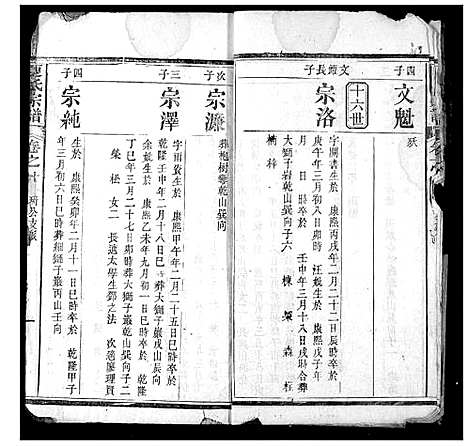 四子
文魁
殀
十六世
文 長子
宗洛
字 書生於 康熙丙戌年二月二十二日戌時卒於
庚午年三月初八日卯時 汪氏生於 康熙戊子年
壬申年三月十八日戌時合葬
大獅子岩乾山巽向子六 棟 梁 森 柱
楠 梓
次子
宗濂
葬 樹 乾山巽向
三子
宗澤
字雨 生於 康熙甲午年二月二十五日巳時卒於
乾隆壬申年二月十八日巳時葬大獅子巖乾山巽向
余氏生於 康熙乙未年九月初一日 時卒於 乾隆
丁巳年三月二十七日卯時葬大獅子巖乾山巽向子二
榮 松 女二 長適太學生 之法 次適廖理賢
四子
宗純
生於 康熙癸卯年二月十一日巳時卒於 乾隆甲子
年三月初六日巳時葬 獅子巖丙山壬向
氏宗譜
卷之十
公支